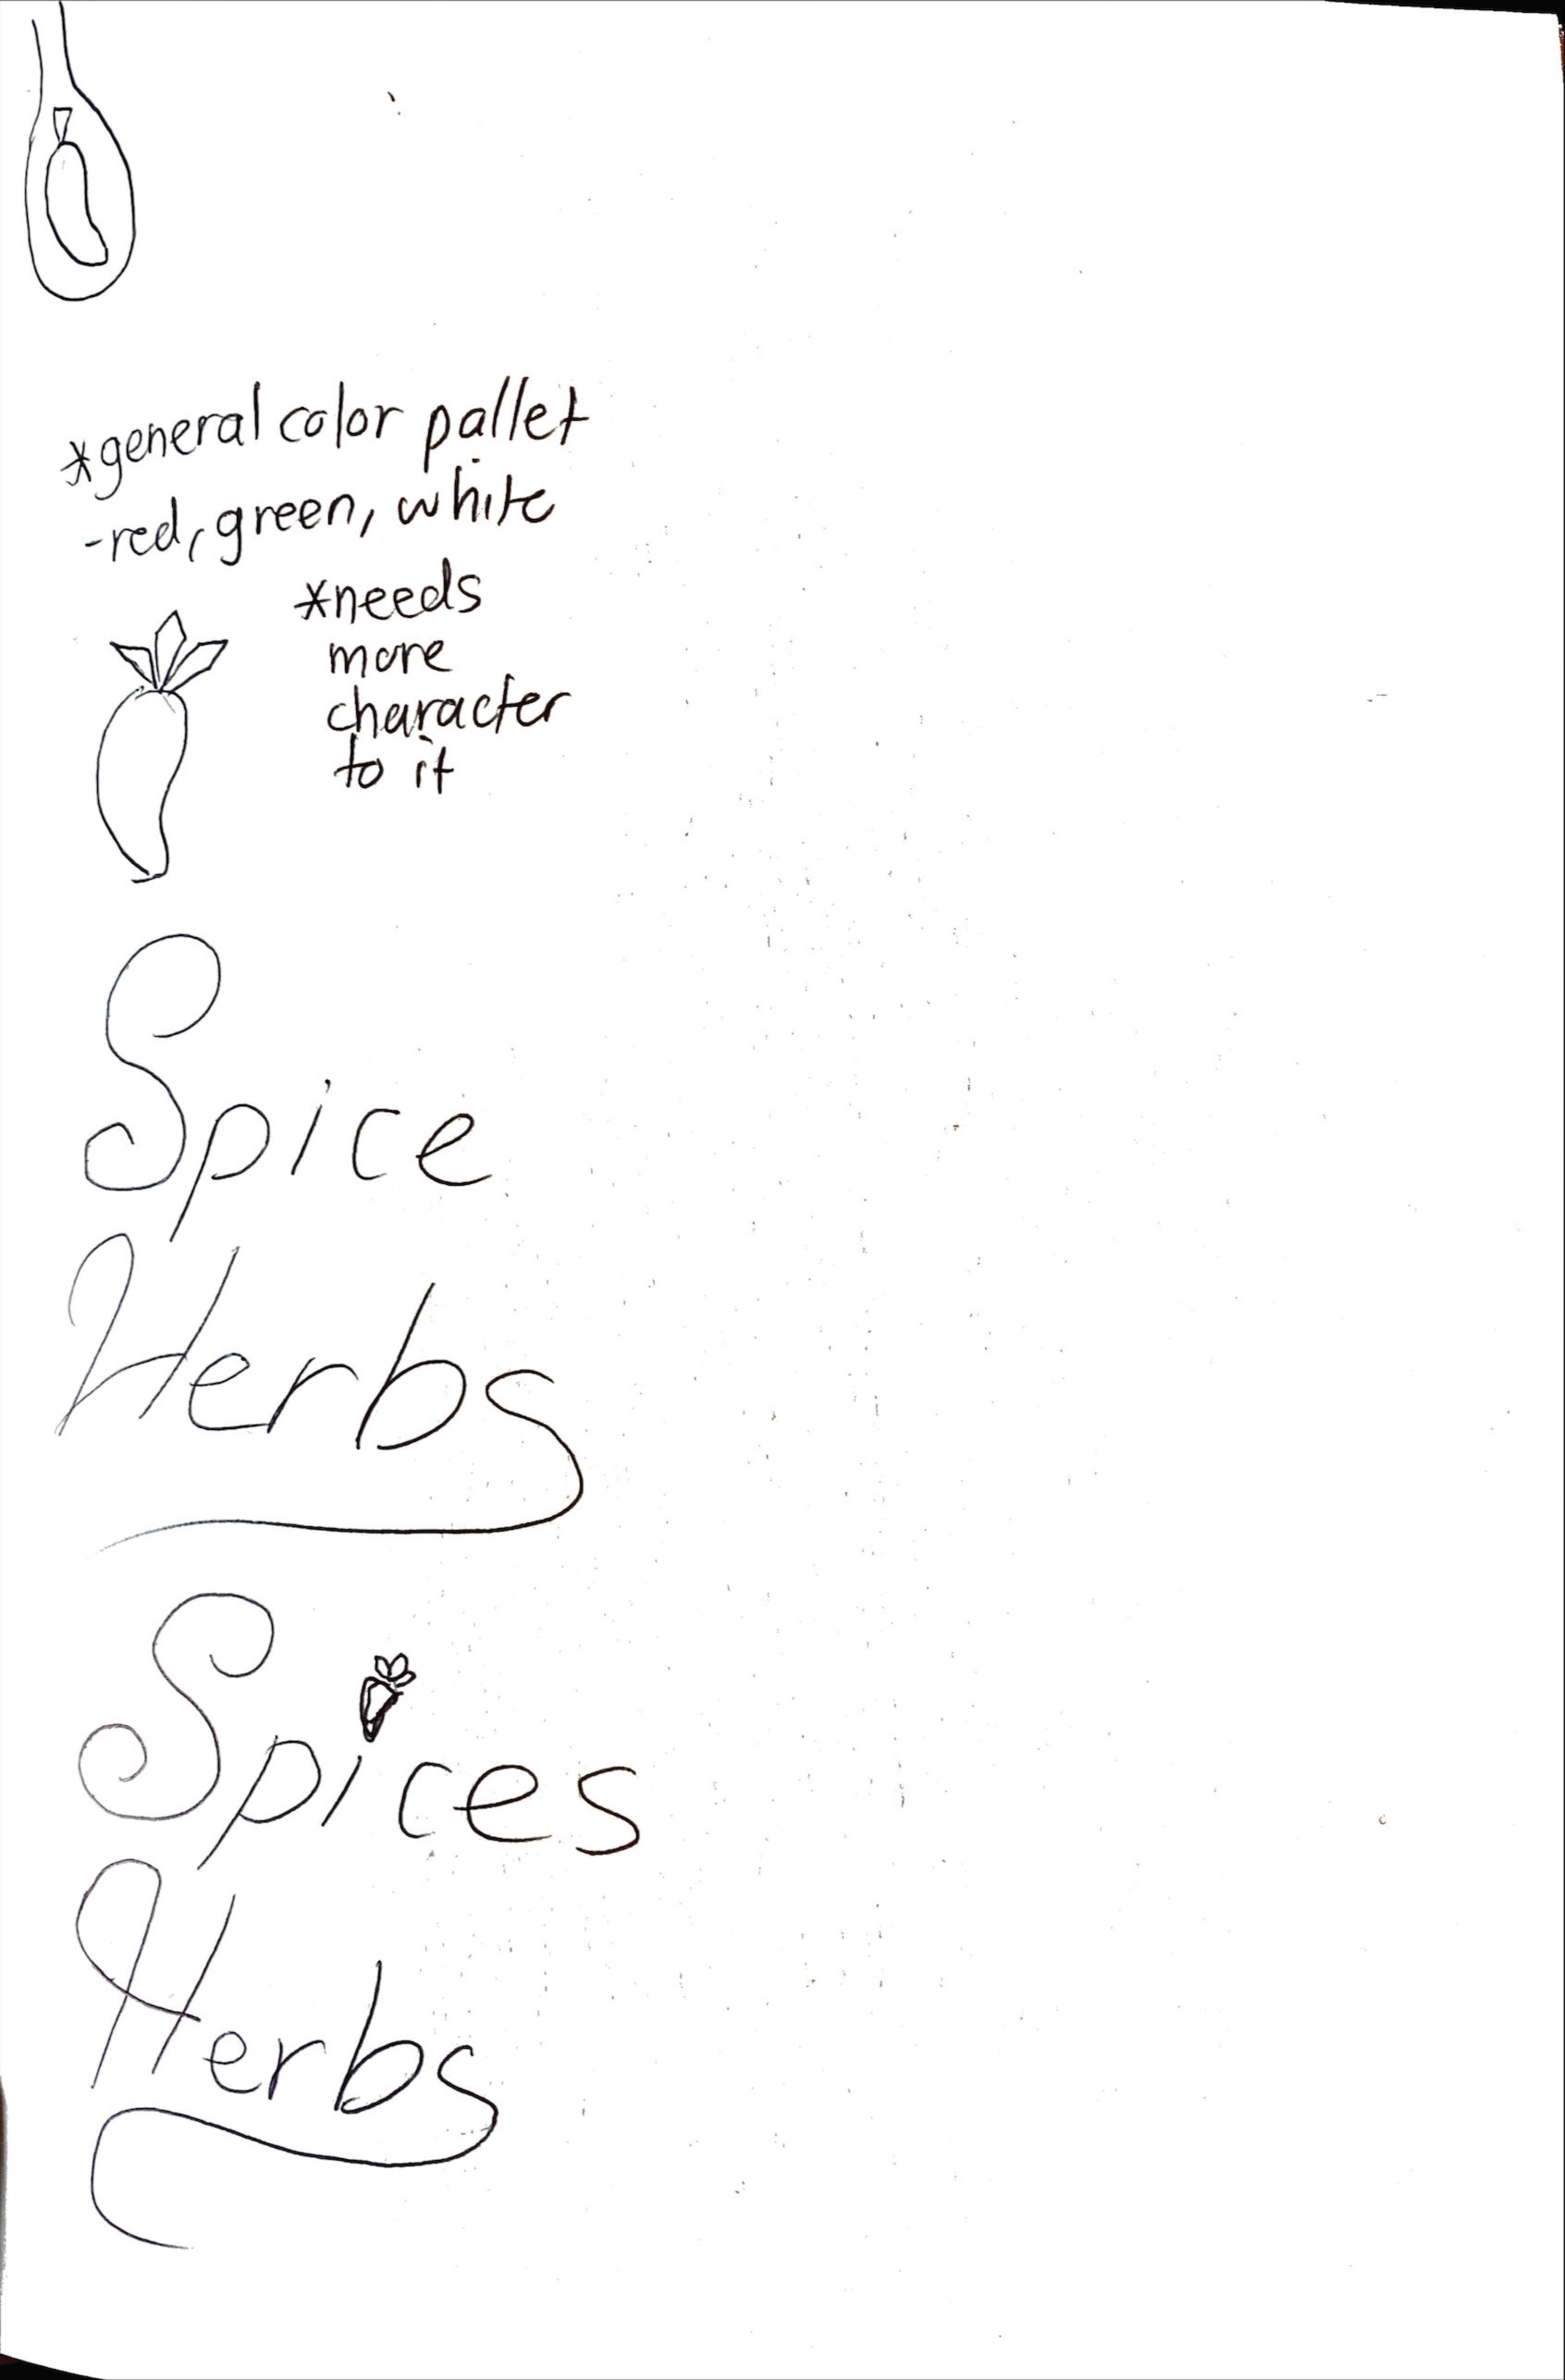 *general color pallet
-red, green, white
*needs
more
character
to it
Spice
Herbs
Spices
Herbs